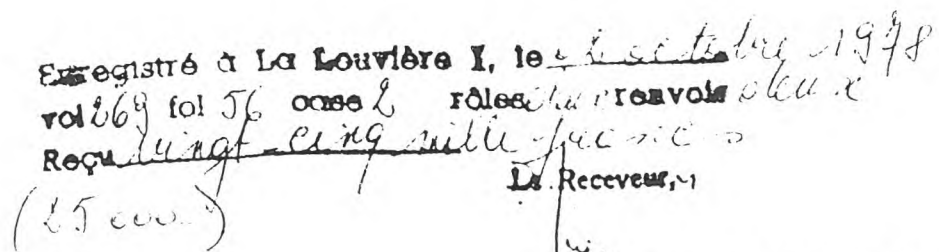 Enregistré à La Louvière I, le octobre 1978
vol 269 fol 56 case 2 rôles renvois deux
Reçu vingt-cinq mille francs
Le Receveur,
(25 000)